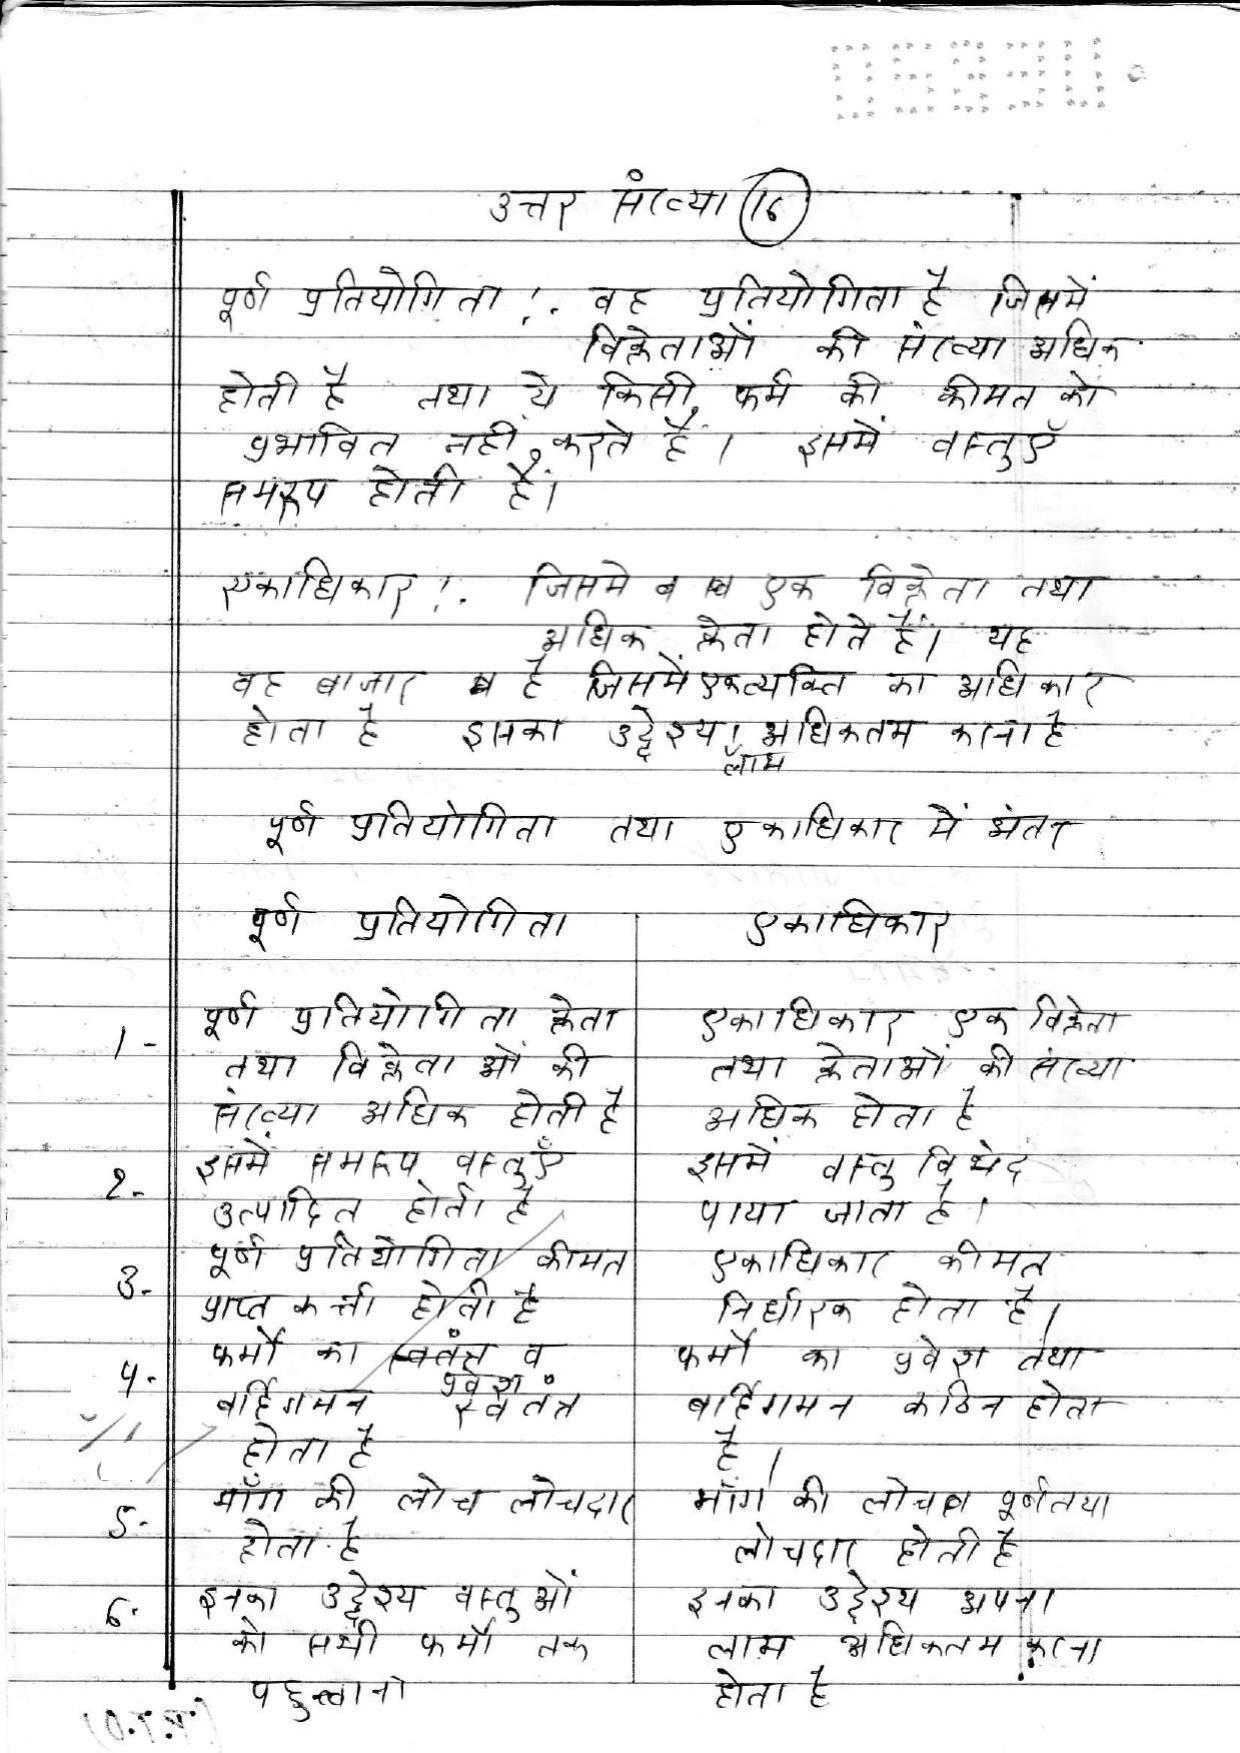 उत्तर संख्या 16
पूर्ण प्रतियोगिता :- वह प्रतियोगिता है जिसमें
विक्रेताओं की संख्या अधिक
होती है तथा ये किसी फर्म की कीमत को
प्रभावित नहीं करते हैं। इसमें वस्तुएँ
समरूप होती हैं।
एकाधिकार :- जिसमे एक विक्रेता तथा
अधिक क्रेता होते हैं। यह
वह बाजार है जिसमें एक व्यक्ति का अधिकार
होता है इसका उद्देश्य लाभ अधिकतम करना है
पूर्ण प्रतियोगिता तथा एकाधिकार में अंतर
पूर्ण प्रतियोगिता एकाधिकार
1- पूर्ण प्रतियोगिता क्रेता एकाधिकार एक विक्रेता
तथा विक्रेताओं की तथा क्रेताओं की संख्या
संख्या अधिक होती है अधिक होता है
2- इसमें समरूप वस्तुएँ इसमें वस्तु विभेद
उत्पादित होती है पाया जाता है।
3- पूर्ण प्रतियोगिता कीमत एकाधिकार कीमत
प्राप्त कर्त्ता होती है निर्धारक होता है।
4- फर्मों का स्वतंत्र व फर्मों का प्रवेश तथा
प्रवेश
बर्हिगमन स्वतंत्र बर्हिगमन कठिन होता
होता है है।
5- माँग की लोच लोचदार माँग की लोच पूर्णतया
होता है लोचदार होती है
6- इनका उद्देश्य वस्तुओं इनका उद्देश्य अपना
को सभी फर्मों तक लाभ अधिकतम करना
पहुच्चाना होता है
(P.T.O)